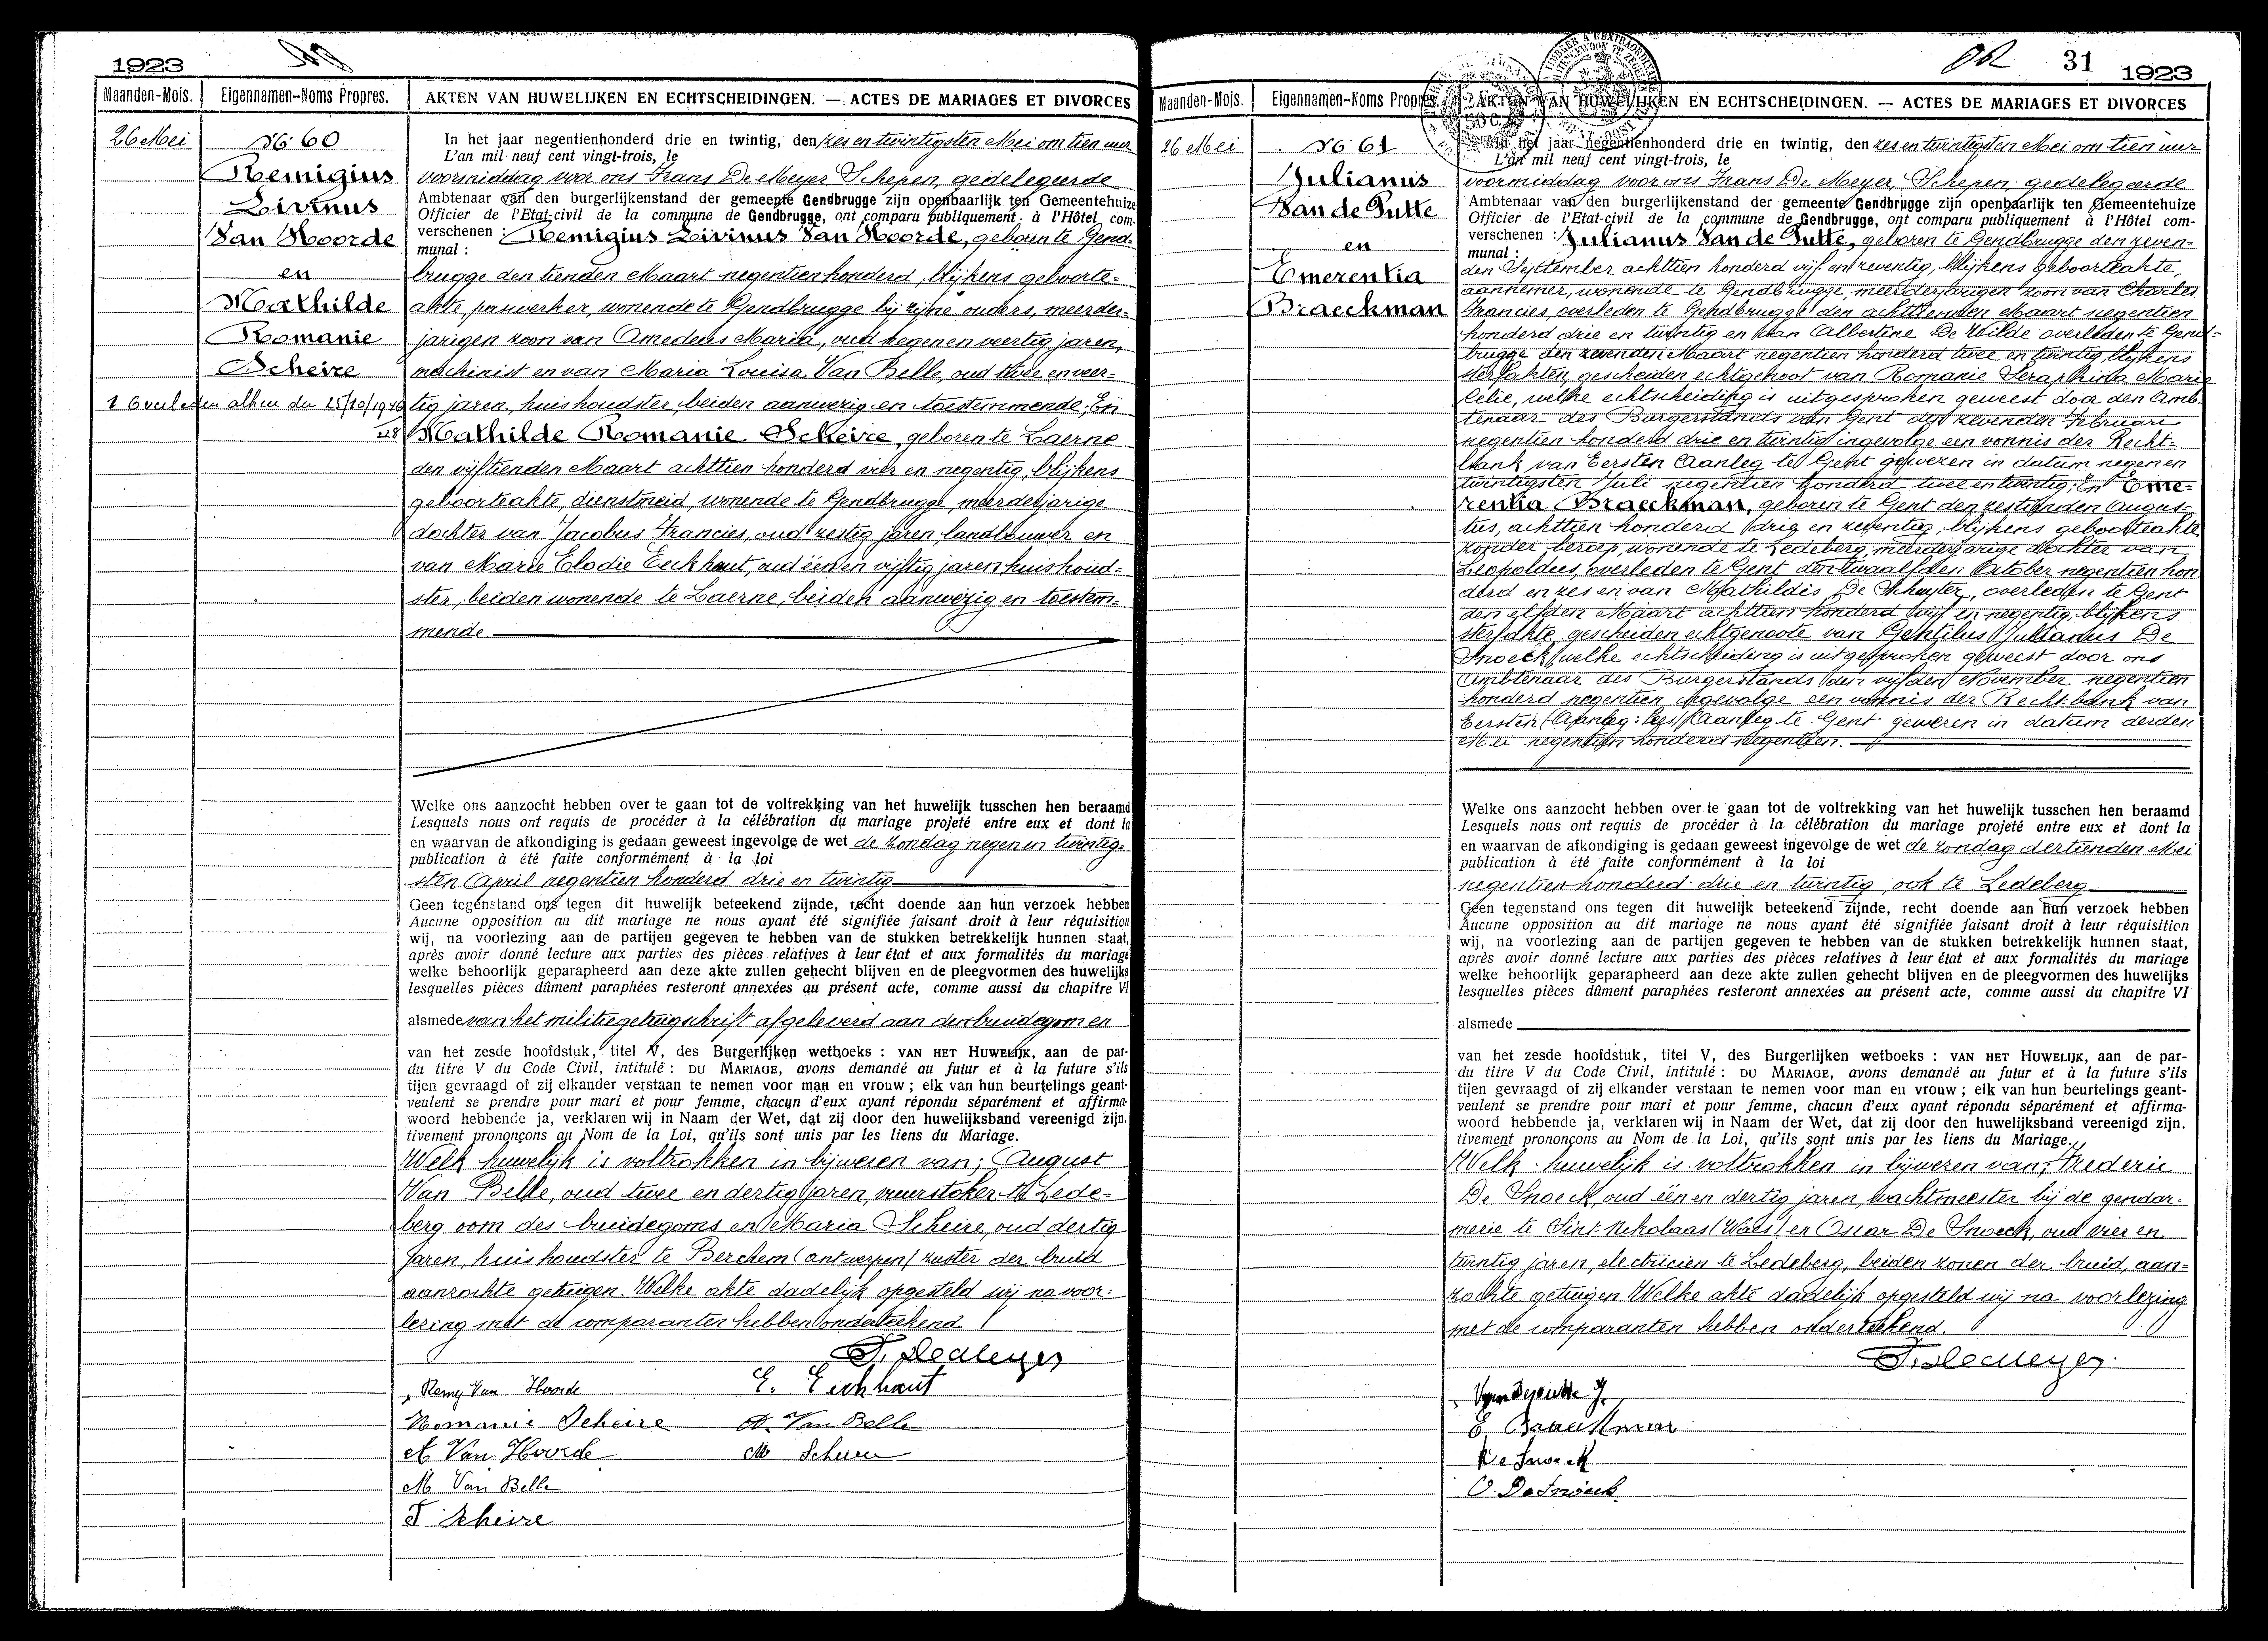 1923
Maanden-Mois.
Eigennamen-Noms Propres.
AKTEN VAN HUWELIJKEN EN ECHTSCHEIDINGEN. — ACTES DE MARIAGES ET DIVORCES
26 Mei
No 60
Remigius
Livinus
Van Hoorde
en
Mathilde
Romanie
Scheire
1 Overleden alhier den 25/10/1946
228
In het jaar negentienhonderd drie en twintig, den zes en twintigsten Mei om tien uur
L'an mil neuf cent vingt-trois, le
voormiddag voor ons Frans De Meyer Schepen, gedelegeerde
Ambtenaar van den burgerlijkenstand der gemeente Gendbrugge zijn openbaarlijk ten Gemeentehuize
Officier de l'Etat-civil de la commune de Gendbrugge, ont comparu publiquement à l'Hôtel com-
verschenen : Remigius Livinus Van Hoorde, geboren te Gend-
munal :
brugge den tienden Maart negentien honderd, blijkens geboorte-
akte, paswerker, wonende te Gendbrugge bij zijne ouders, meerder-
jarigen zoon van Amedeus Maria, oud negen en veertig jaren,
machinist en van Maria Louisa Van Belle, oud twee en veer-
tig jaren, huishoudster, beiden aanwezig en toestemmende. En
Mathilde Romanie Scheire, geboren te Laerne
den vijftienden Maart achttien honderd vier en negentig, blijkens
geboorteakte, dienstmeid, wonende te Gendbrugge, meerderjarige
dochter van Jacobus Francies, oud zestig jaren, landbouwer en
van Marie Elodie Eeckhout, oud één en vijftig jaren huishoud-
ster, beiden wonende te Laerne, beiden aanwezig en toestem-
mende.
Welke ons aanzocht hebben over te gaan tot de voltrekking van het huwelijk tusschen hen beraamd
Lesquels nous ont requis de procéder à la célébration du mariage projeté entre eux et dont la
en waarvan de afkondiging is gedaan geweest ingevolge de wet de zondag negen en twintig-
publication à été faite conformément à la loi
sten April negentien honderd drie en twintig
Geen tegenstand ons tegen dit huwelijk beteekend zijnde, recht doende aan hun verzoek hebben
Aucune opposition au dit mariage ne nous ayant été signifiée faisant droit à leur réquisition
wij, na voorlezing aan de partijen gegeven te hebben van de stukken betrekkelijk hunnen staat,
après avoir donné lecture aux parties des pièces relatives à leur état et aux formalités du mariage
welke behoorlijk geparapheerd aan deze akte zullen gehecht blijven en de pleegvormen des huwelijks
lesquelles pièces dûment paraphées resteront annexées au présent acte, comme aussi du chapitre VI
alsmede van het militiegetuigschrift afgeleverd aan den bruidegom en
van het zesde hoofdstuk, titel V, des Burgerlijken wetboeks : VAN HET HUWELIJK, aan de par-
du titre V du Code Civil, intitulé : DU MARIAGE, avons demandé au futur et à la future s'ils
tijen gevraagd of zij elkander verstaan te nemen voor man en vrouw ; elk van hun beurtelings geant-
veulent se prendre pour mari et pour femme, chacun d'eux ayant répondu séparément et affirma-
woord hebbende ja, verklaren wij in Naam der Wet, dat zij door den huwelijksband vereenigd zijn.
tivement prononçons au Nom de la Loi, qu'ils sont unis par les liens du Mariage.
Welk huwelijk is voltrokken in bijwezen van; August
Van Belle, oud twee en dertig jaren, vuurstoker te Lede-
berg oom des bruidegoms en Maria Scheire, oud dertig
jaren, huishoudster te Berchem (antwerpen) zuster der bruid
aanzochte getuigen. Welke akte dadelijk opgesteld wij na voor-
lezing met de comparanten hebben onderteekend.
F. De Meyer
Remy Van Hoorde
E. Eeckhaut
Romanie Scheire
A. Van Belle
A Van Hoorde
M Scheire
M Van Belle
J Scheire
31
1923
Maanden-Mois.
Eigennamen-Noms Propres.
AKTEN VAN HUWELIJKEN EN ECHTSCHEIDINGEN. — ACTES DE MARIAGES ET DIVORCES
26 Mei
No 61
Julianus
Van de Putte
en
Emerentia
Braeckman
In het jaar negentienhonderd drie en twintig, den zes en twintigsten Mei om tien uur
L'an mil neuf cent vingt-trois, le
voormiddag voor ons Frans De Meyer, Schepen, gedelegeerde
Ambtenaar van den burgerlijkenstand der gemeente Gendbrugge zijn openbaarlijk ten Gemeentehuize
Officier de l'Etat-civil de la commune de Gendbrugge, ont comparu publiquement à l'Hôtel com-
verschenen : Julianus Van de Putte, geboren te Gendbrugge den zeven-
munal :
den September achttien honderd vijf en zeventig, blijkens geboorteakte,
aannemer, wonende te Gendbrugge, meerderjarigen zoon van Charles
Francies, overleden te Gendbrugge den achttienden Maart negentien
honderd drie en twintig en van Albertine De Wilde overleden te Gend-
brugge den zevenden Maart negentien honderd twee en twintig, blijkens
sterfakten, gescheiden echtgenoot van Romanie Seraphina Marie
Celie, welke echtscheiding is uitgesproken geweest door den Amb-
tenaar des Burgerstands van Gent den zevenden Februari
negentien honderd drie en twintig ingevolge een vonnis der Recht-
bank van Eersten Aanleg te Gent gewezen in datum negen en
twintigsten Juli negentien honderd twee en twintig; En Eme-
rentia Braeckman, geboren te Gent den zestienden Augus-
tus, achttien honderd drie en zeventig, blijkens geboorteakte,
zonder beroep, wonende te Ledeberg, meerderjarige dochter van
Leopoldus, overleden te Gent den twaalfden October negentien hon
derd en zes en van Mathildis De Schuyter, overleden te Gent
den elfden Maart achttien honderd vijf en negentig, blijkens
sterfakte, gescheiden echtgenoote van Gentilus Julianus De
Snoeck, welke echtscheiding is uitgesproken geweest door ons
Ambtenaar des Burgerstands den vijfden November negentien
honderd negentien ingevolge een vonnis der Rechtbank van
Eersten (Aanleg: lees) Aanleg te Gent gewezen in datum derden
Mei negentien honderd negentien.
Welke ons aanzocht hebben over te gaan tot de voltrekking van het huwelijk tusschen hen beraamd
Lesquels nous ont requis de procéder à la célébration du mariage projeté entre eux et dont la
en waarvan de afkondiging is gedaan geweest ingevolge de wet de zondag dertienden Mei
publication à été faite conformément à la loi
negentien honderd drie en twintig ook te Ledeberg
Geen tegenstand ons tegen dit huwelijk beteekend zijnde, recht doende aan hun verzoek hebben
Aucune opposition au dit mariage ne nous ayant été signifiée faisant droit à leur réquisition
wij, na voorlezing aan de partijen gegeven te hebben van de stukken betrekkelijk hunnen staat,
après avoir donné lecture aux parties des pièces relatives à leur état et aux formalités du mariage
welke behoorlijk geparapheerd aan deze akte zullen gehecht blijven en de pleegvormen des huwelijks
lesquelles pièces dûment paraphées resteront annexées au présent acte, comme aussi du chapitre VI
alsmede
van het zesde hoofdstuk, titel V, des Burgerlijken wetboeks : VAN HET HUWELIJK, aan de par-
du titre V du Code Civil, intitulé : DU MARIAGE, avons demandé au futur et à la future s'ils
tijen gevraagd of zij elkander verstaan te nemen voor man en vrouw ; elk van hun beurtelings geant-
veulent se prendre pour mari et pour femme, chacun d'eux ayant répondu séparément et affirma-
woord hebbende ja, verklaren wij in Naam der Wet, dat zij door den huwelijksband vereenigd zijn.
tivement prononçons au Nom de la Loi, qu'ils sont unis par les liens du Mariage.
Welk huwelijk is voltrokken in bijwezen van; Frederic
De Snoeck, oud één en dertig jaren, wachtmeester bij de gendar-
merie te Sint Nikolaas (Waes) en Oscar De Snoeck, oud vier en
twintig jaren, electricien te Ledeberg, beiden zonen der bruid, aan-
zochte getuigen. Welke akte dadelijk opgesteld wij na voorlezing
met de comparanten hebben onderteekend.
F. De Meyer
Vandeputte J.
E Braeckman
De Snoeck
O. De Snoeck